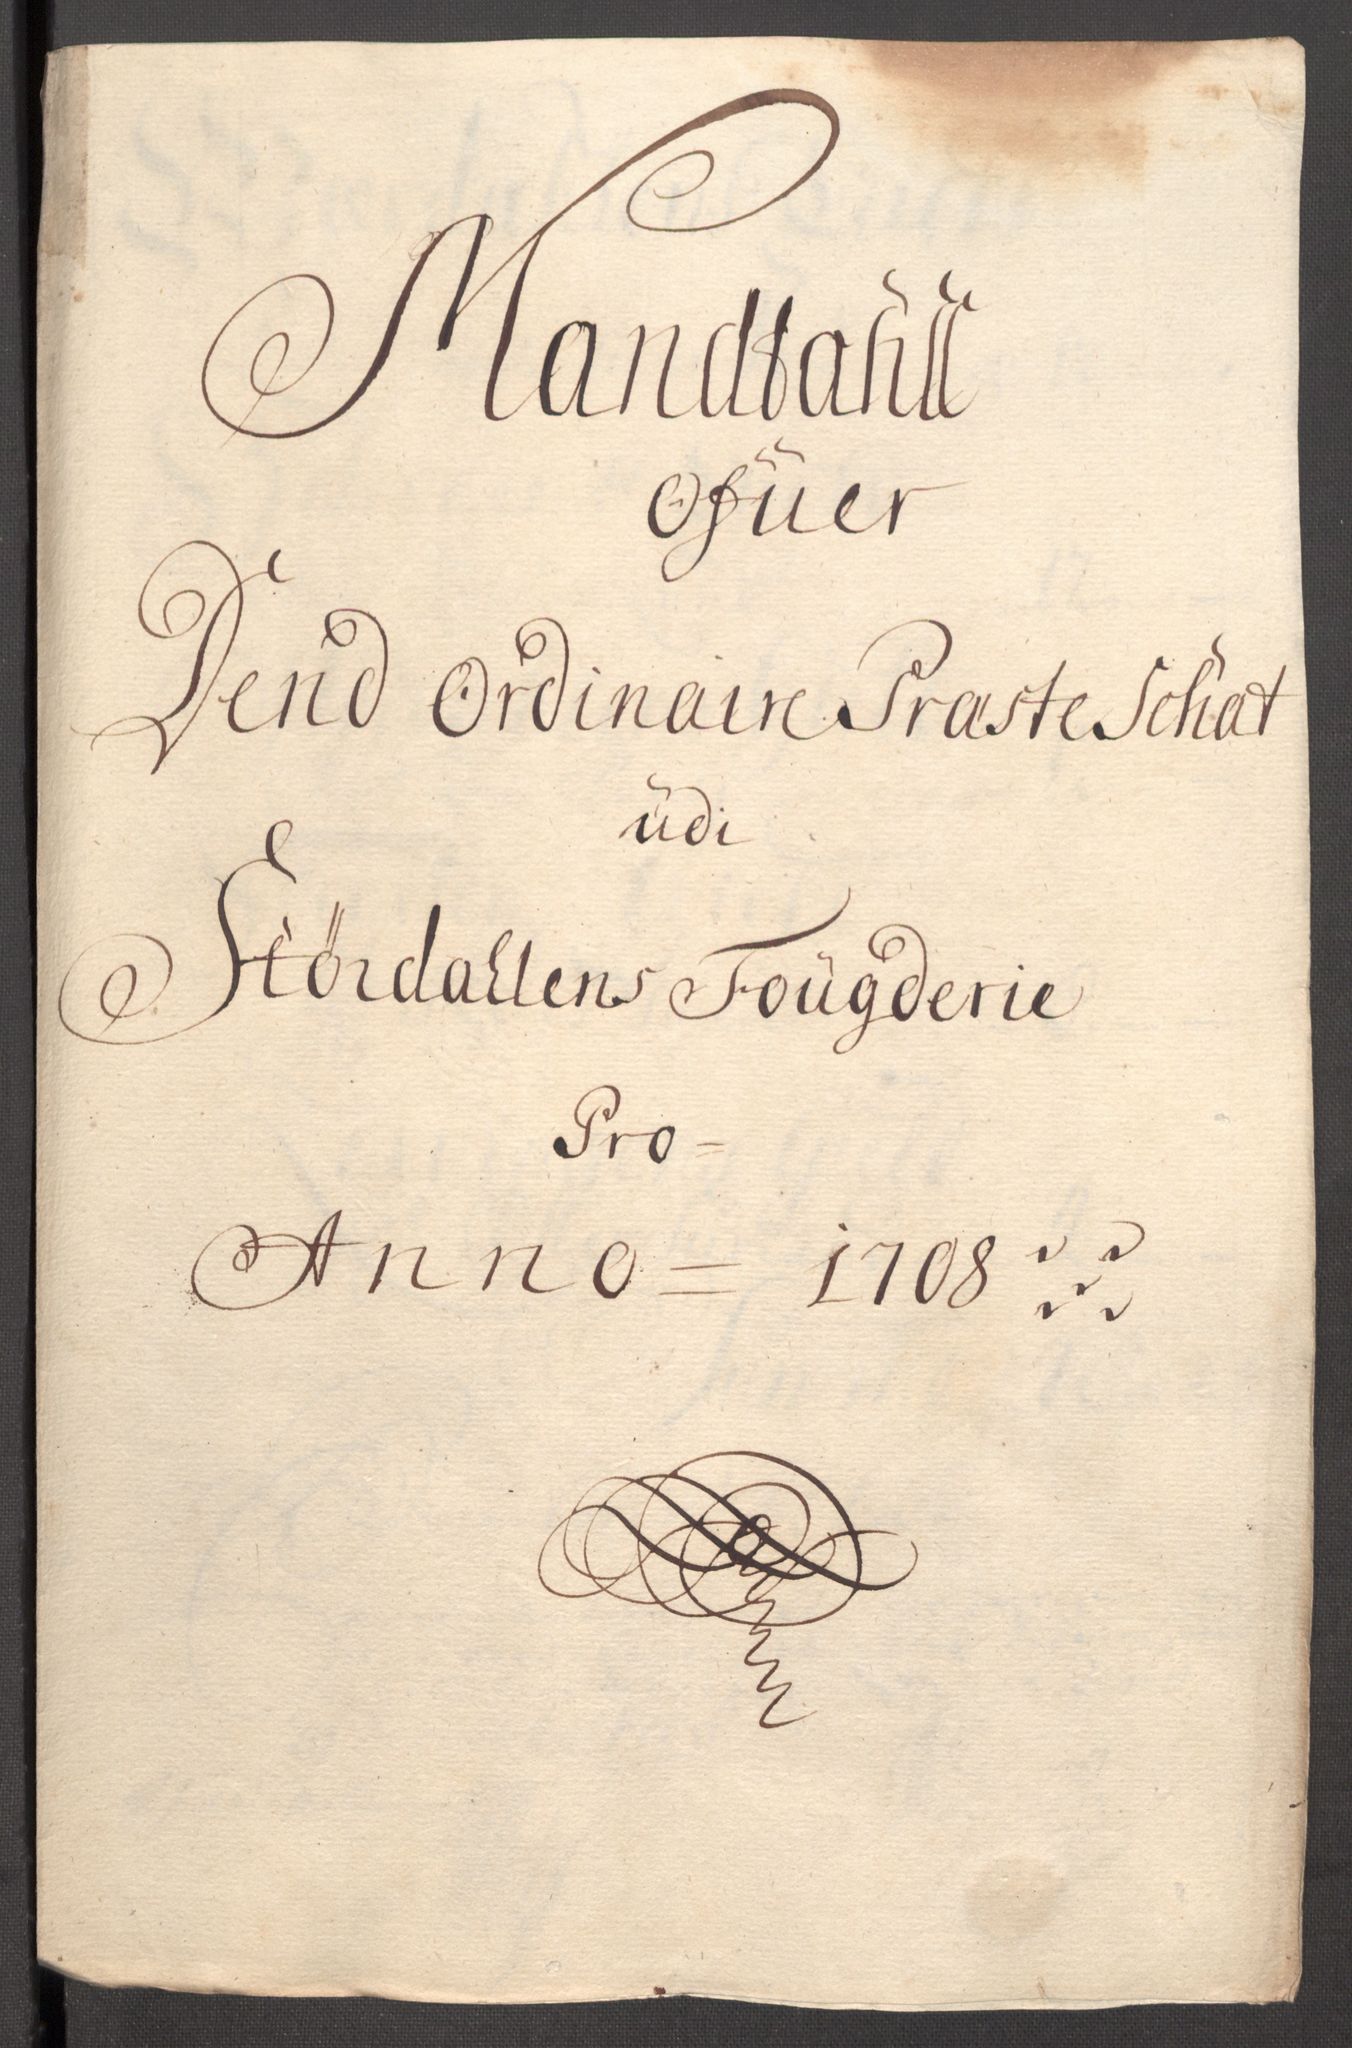 Mandtahll
ofüer
Dend Ordinaire Præste Schat
üdi
Stördallens Foügderie
Pro=
Anno = 1708